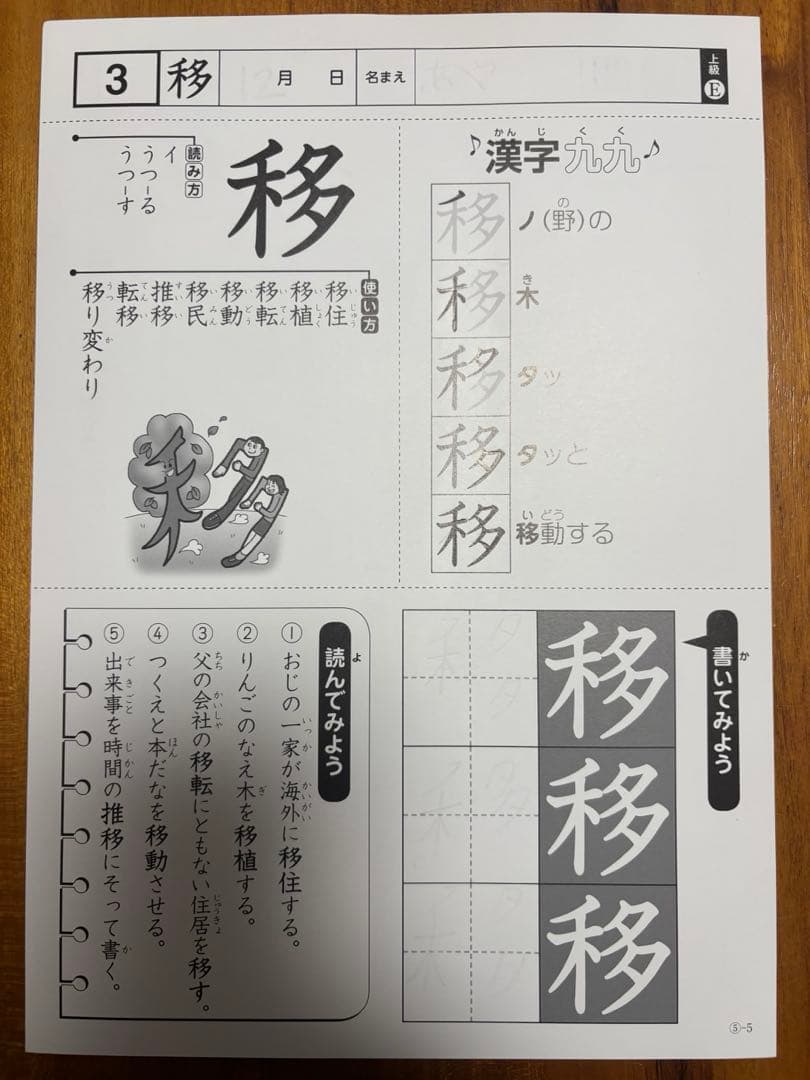 3 移 月 日 名まえ
上級 E
移
読み方
イ
うつーる
うつーす
使い方
移住
移植
移転
移動
移民
推移
転移
移り変わり
♪漢字九九♪
移 ノ(野)の
移 木
移 タッ
移 タッと
移 移動する
書いてみよう
移
移
移
読んでみよう
① おじの一家が海外に移住する。
② りんごのなえ木を移植する。
③ 父の会社の移転にともない住居を移す。
④ つくえと本だなを移動させる。
⑤ 出来事を時間の推移にそって書く。
⑤-5